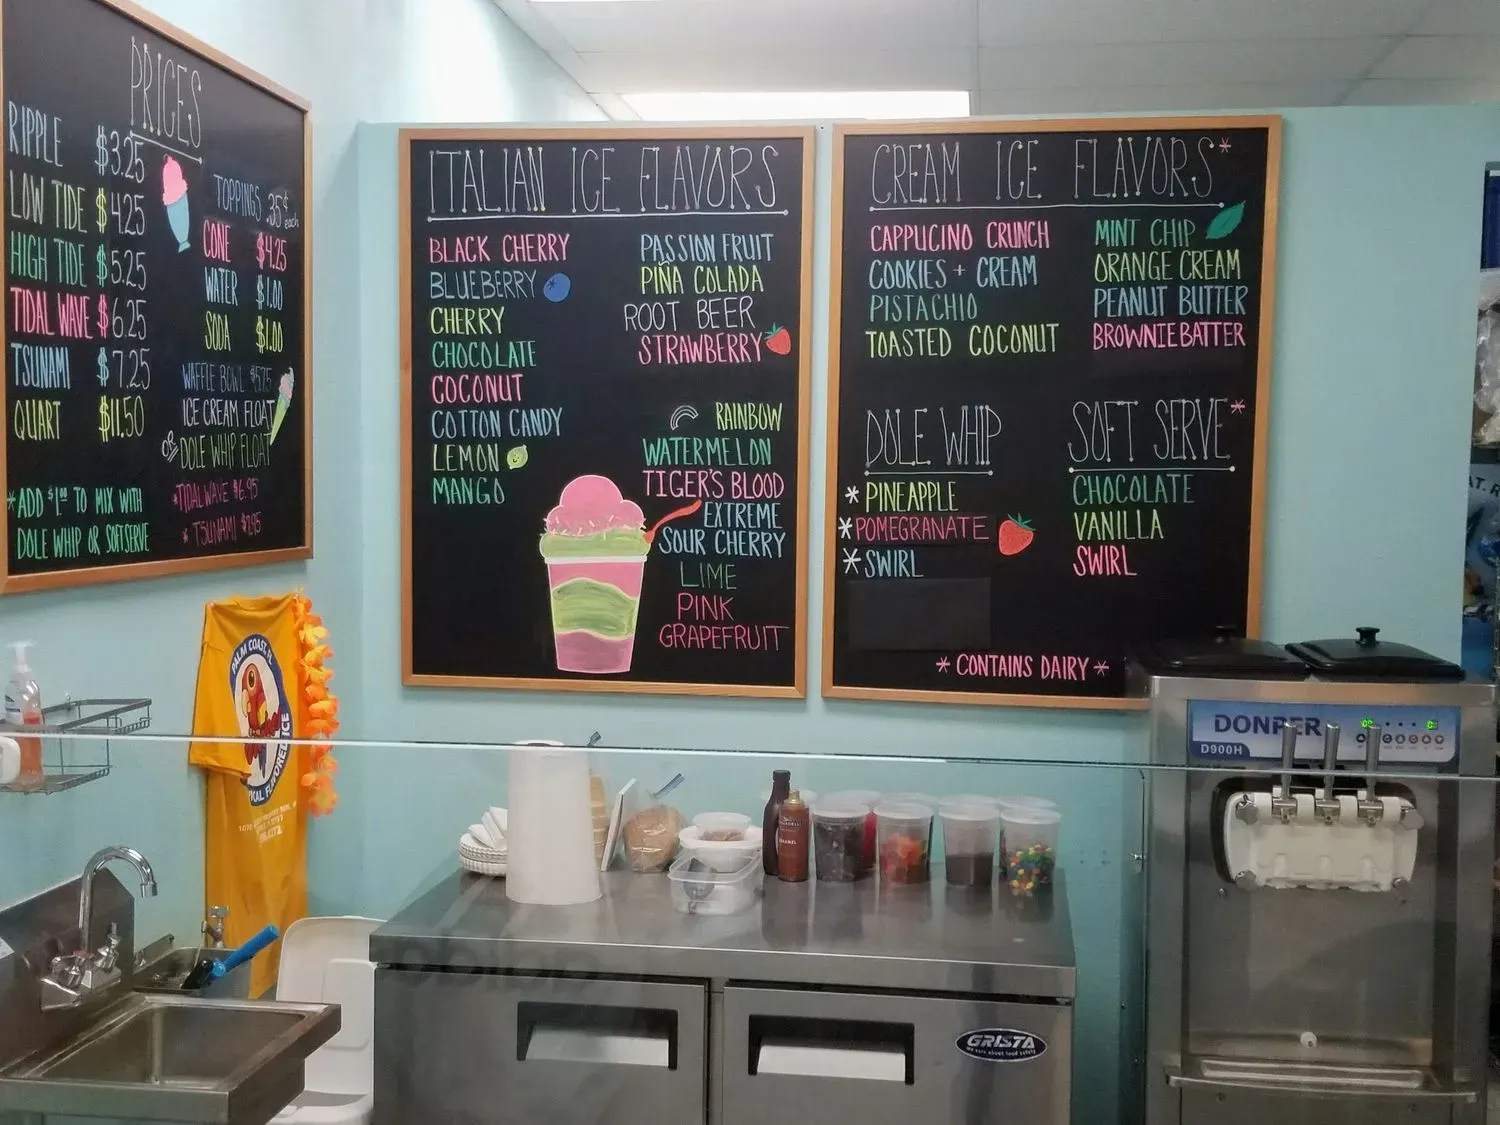 PRICES
RIPPLE $3.25
LOW TIDE $4.25
HIGH TIDE $5.25
TIDAL WAVE $6.25
TSUNAMI $7.25
QUART $11.50
*ADD $1.00 TO MIX WITH
DOLE WHIP OR SOFTSERVE
TOPPINGS .35¢ each
CONE $4.25
WATER $1.00
SODA $1.00
WAFFLE BOWL $5.75
ICE CREAM FLOAT
OR DOLE WHIP FLOAT
*TIDALWAVE $6.95
*TSUNAMI $7.95
ITALIAN ICE FLAVORS
BLACK CHERRY
BLUEBERRY
CHERRY
CHOCOLATE
COCONUT
COTTON CANDY
LEMON
MANGO
PASSION FRUIT
PIÑA COLADA
ROOT BEER
STRAWBERRY
RAINBOW
WATERMELON
TIGER'S BLOOD
EXTREME
SOUR CHERRY
LIME
PINK
GRAPEFRUIT
CREAM ICE FLAVORS*
CAPPUCINO CRUNCH
COOKIES + CREAM
PISTACHIO
TOASTED COCONUT
MINT CHIP
ORANGE CREAM
PEANUT BUTTER
BROWNIE BATTER
DOLE WHIP
*PINEAPPLE
*POMEGRANATE
*SWIRL
SOFT SERVE*
CHOCOLATE
VANILLA
SWIRL
*CONTAINS DAIRY*
PALM COAST, FL
DONPER
D900H
GRISTA